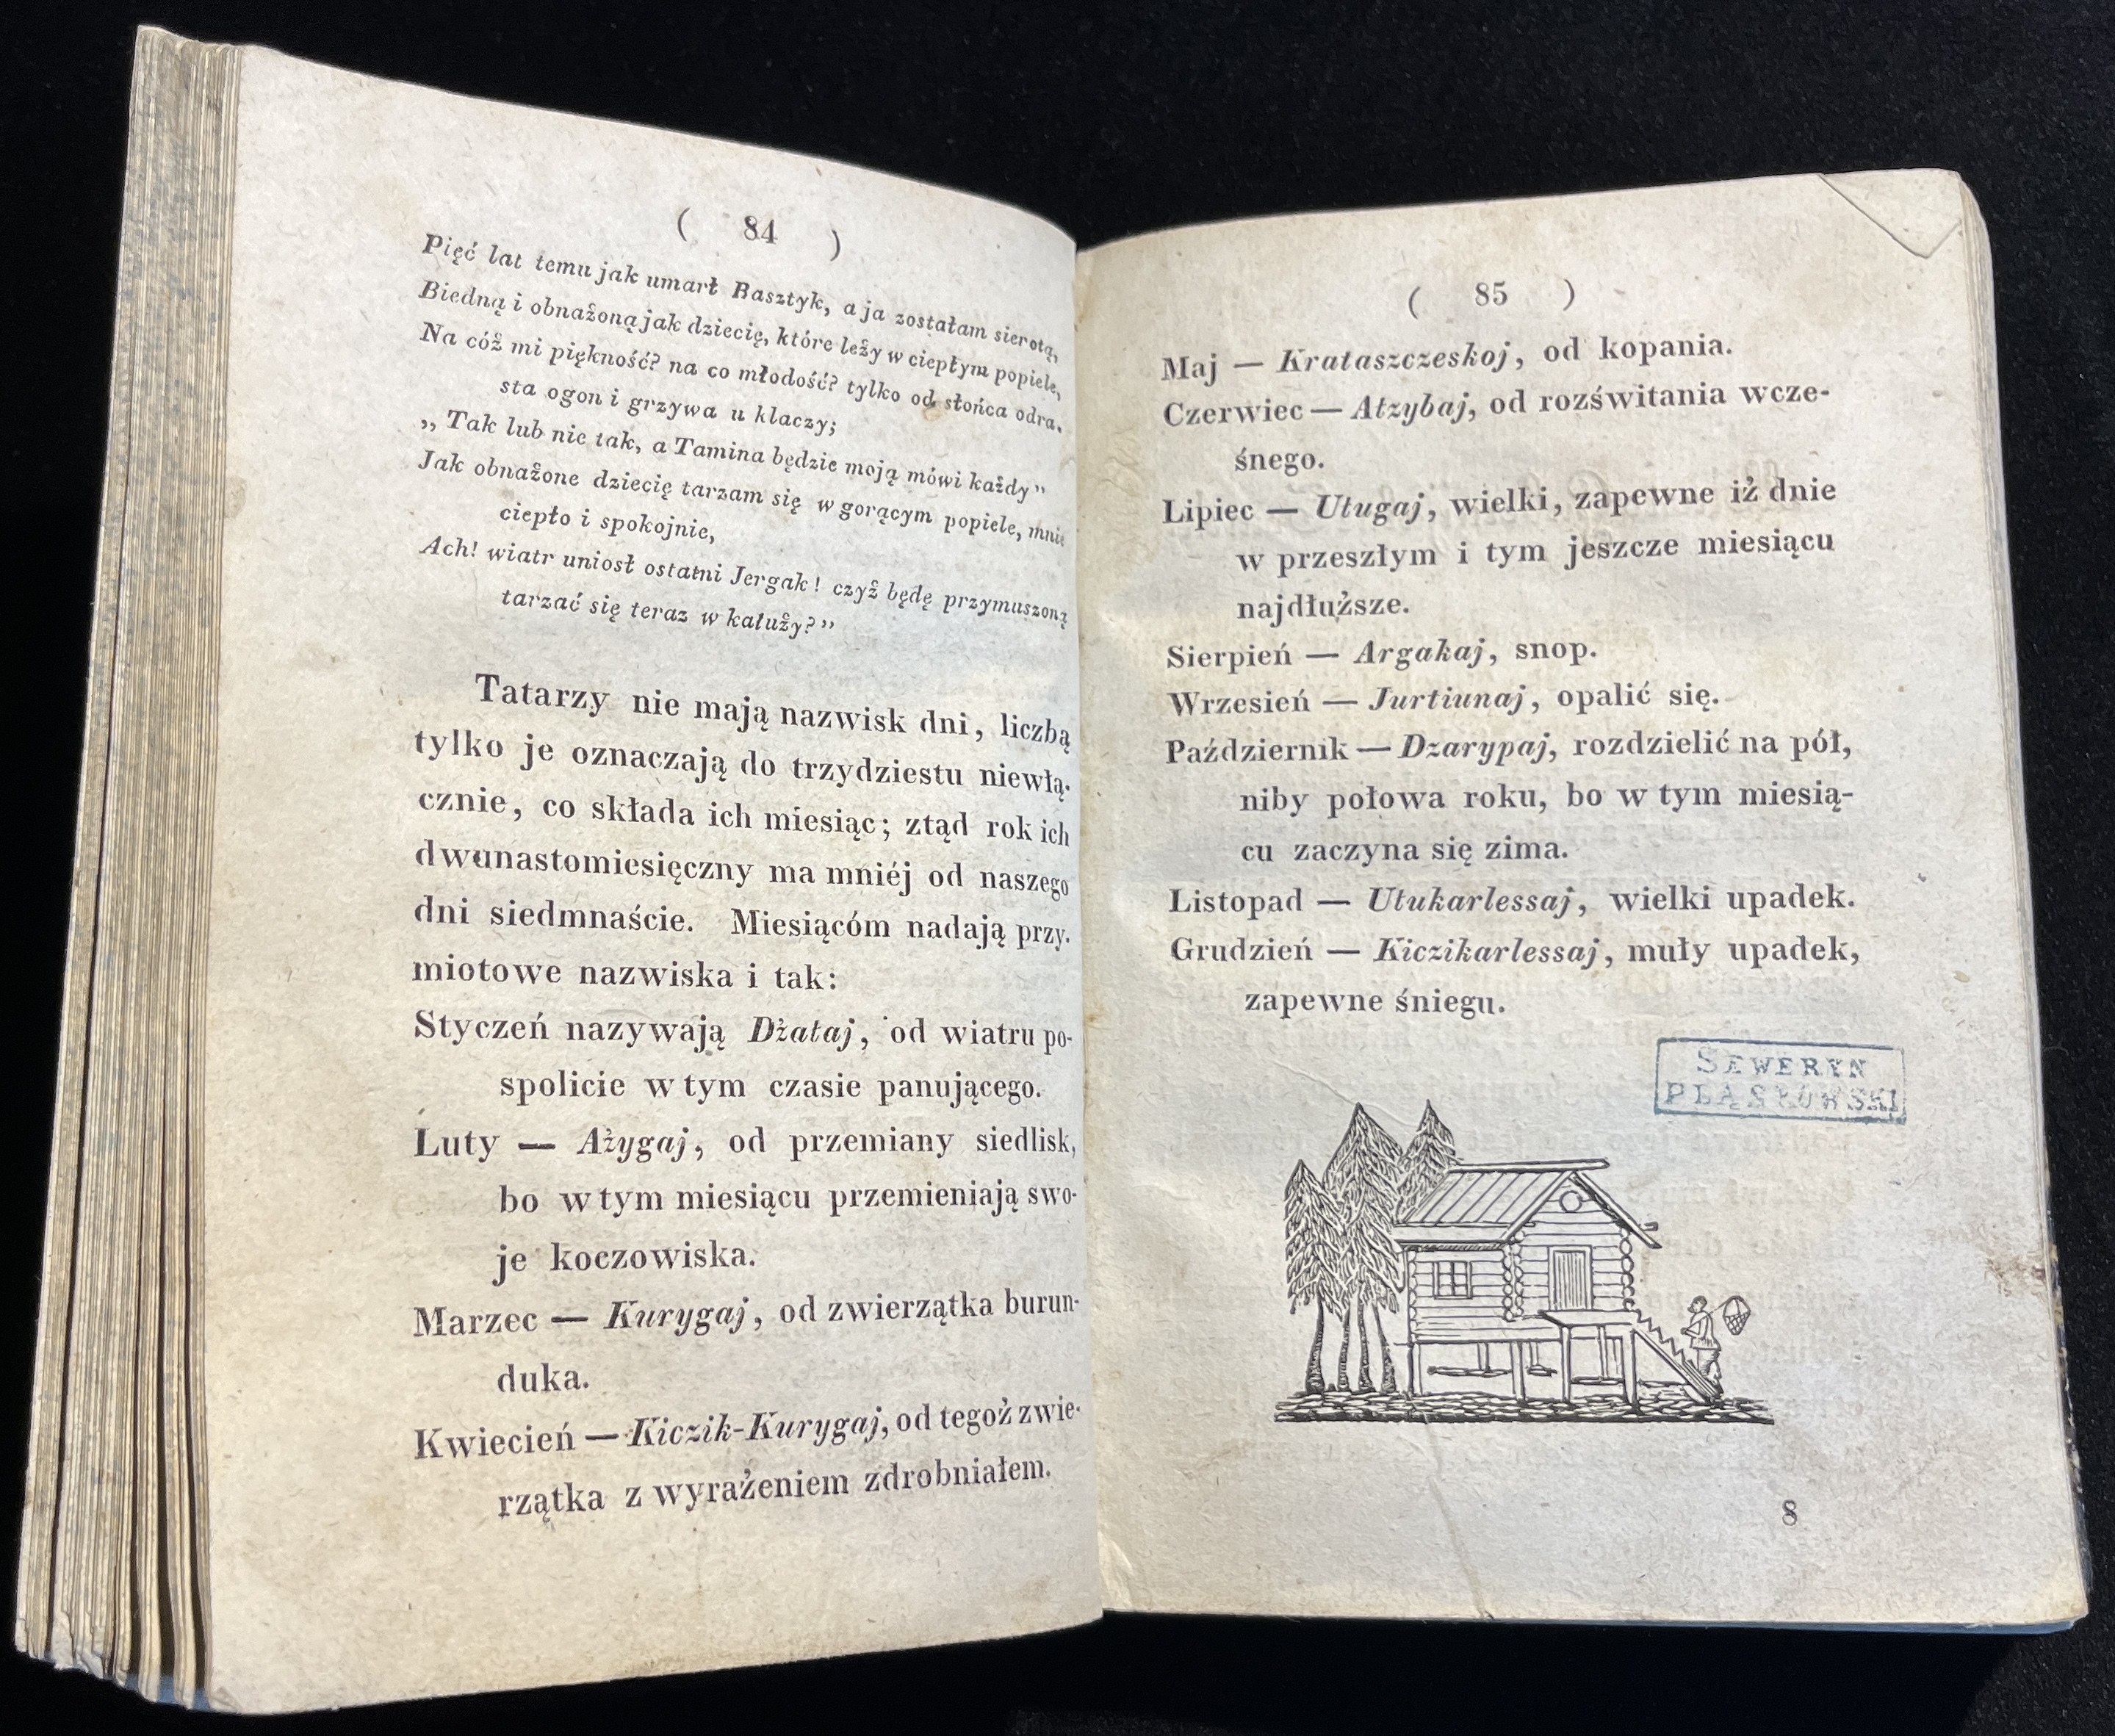 ( 84 )
Pięć lat temu jak umarł Basztyk, a ja zostałam sierotą,
Biedną i obnażoną jak dziecię, które leży w ciepłym popiele,
Na cóż mi piękność? na co młodość? tylko od słońca odra.
sta ogon i grzywa u klaczy;
„ Tak lub nie tak, a Tamina będzie moją mówi każdy”
Jak obnażone dziecię tarzam się w gorącym popiele, mnie
ciepło i spokojnie,
Ach! wiatr uniosł ostatni Jergak! czyż będę przymuszoną
tarzać się teraz w kałuży?”
Tatarzy nie mają nazwisk dni, liczbą
tylko je oznaczają do trzydziestu niewłą-
cznie, co składa ich miesiąc; ztąd rok ich
dwunastomiesięczny ma mniéj od naszego
dni siedmnaście. Miesiącóm nadają przy-
miotowe nazwiska i tak:
Styczeń nazywają Dżataj, od wiatru po-
spolicie w tym czasie panującego.
Luty — Ażygaj, od przemiany siedlisk,
bo w tym miesiącu przemieniają swo-
je koczowiska.
Marzec — Kurygaj, od zwierzątka burun-
duka.
Kwiecień — Kiczik-Kurygaj, od tegoż zwie-
rzątka z wyrażeniem zdrobniałem.
( 85 )
Maj — Krataszczeskoj, od kopania.
Czerwiec — Atzybaj, od rozświtania wcze-
śnego.
Lipiec — Utugaj, wielki, zapewne iż dnie
w przeszłym i tym jeszcze miesiącu
najdłuższe.
Sierpień — Argakaj, snop.
Wrzesień — Jurtiunaj, opalić się.
Październik — Dzarypaj, rozdzielić na pół,
niby połowa roku, bo w tym miesią-
cu zaczyna się zima.
Listopad — Utukarlessaj, wielki upadek.
Grudzień — Kiczikarlessaj, muły upadek,
zapewne śniegu.
SEWERYN
PLĄSŁOWSKI
8